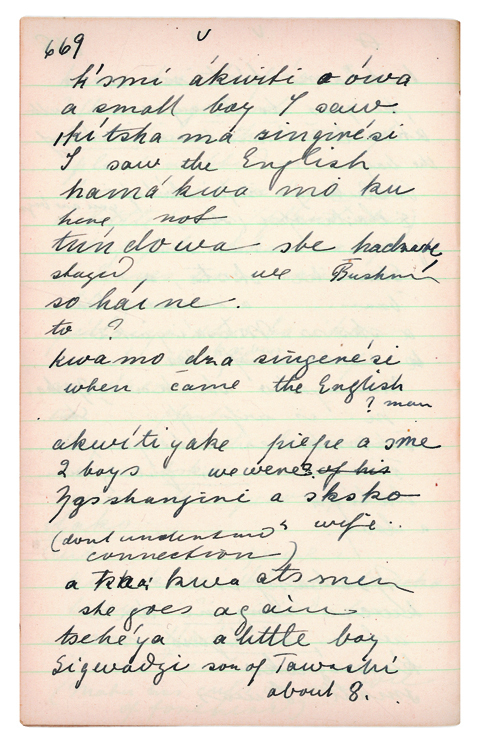 669
k'smi ákwiti o ówa
a small boy I saw.
I saw the English
hamá kwa mo ku
here not
túndowa sbe hadzabe
stayed we Bushmí
so háine.
to ?
kwamo dza singeré'si
when came the English
? man
akwíti yake piepe a sme
2 boys we were ? of his
a skoko
wife ..
(dont understand
connection)
a kwa etsmen
she goes again
tsehé'ya a little boy
Sigwadzi son of Tawashi
about 8.